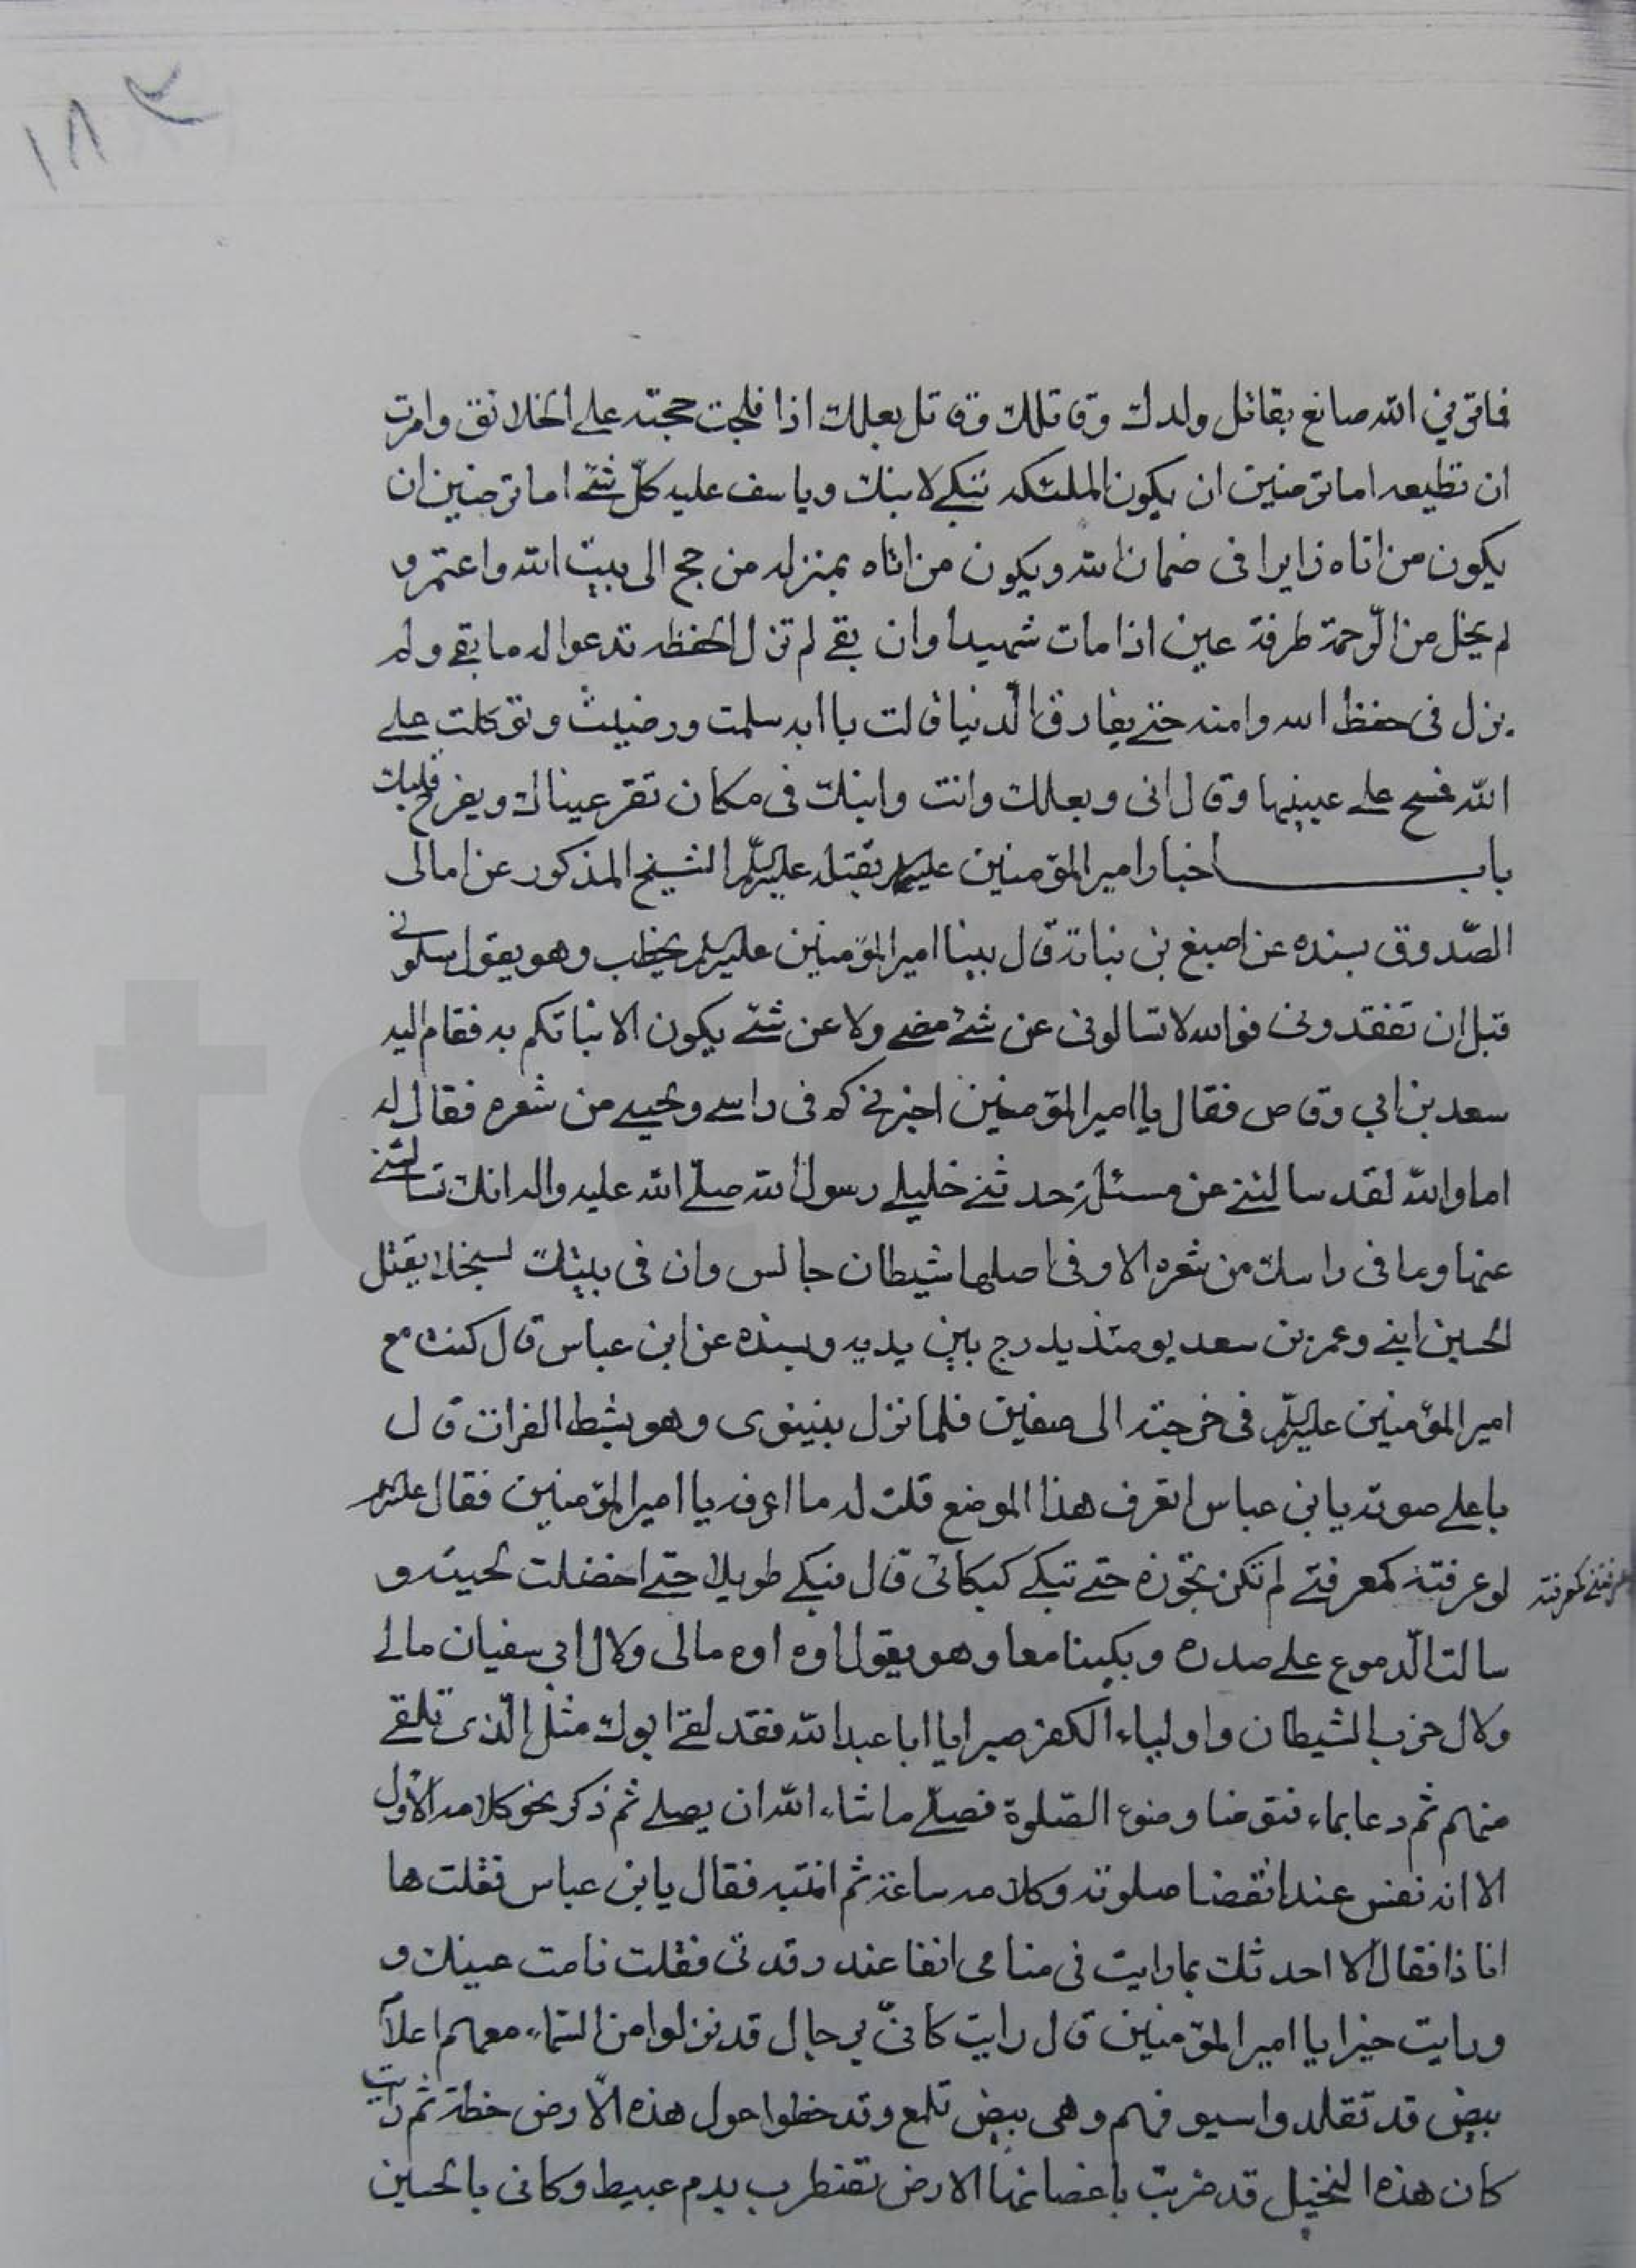 ١٨٢
فماترين الله صانع بقاتل ولدك وقاتلك وقاتل بعلك اذا فلجت حجته على الخلائق وامرت
ان تطيعه اما ترضين ان يكون الملئكه تبكي لابنك وياسف عليه كلّ شئ اما ترضين ان
يكون من اتاه زايرا فى ضمان الله ويكون من اتاه بمنزله من حج الى بيت الله واعتمر و
لم يخل من الرّحمة طرفة عين اذا مات شهيدا وان بقى لم تزل الحفظه تدعوا له ما بقى ولم
يزل فى حفظ الله وامنه حتى يفارق الّدنيا قالت يا ابه سلمت ورضيت وتوكلت على
الله فمسح على عينيها وقال انى وبعلك وانت وابنك فى مكان تقر عيناك ويفرح قلبك
باب اخبار امير المؤمنين عليه السلم بقتله عليه السلم الشيخ المذكور عن امالى
الصّدوق بسنده عن اصبغ بن نباتة قال بينا امير المؤمنين عليه السلم يخطب وهو يقول سلونى
قبل ان تفقدونى فوالله لا تسالونى عن شئ مضى ولا عن شئ يكون الا نباتكم به فقام اليه
سعد بن ابي وقاص فقال يا امير المؤمنين اخبرنى كم فى راسى ولحيتى من شعره فقال له
اما والله لقد سالتنى عن مسئلة حدثنى خليلى رسول الله صلّى الله عليه واله انك تسالنى
عنها وما فى راسك من شعره الا وفى اصلها شيطان جالس وان فى بيتك لسخلا يقتل
الحسين ابنى وعمر بن سعد يومئذ يدرج بين يديه وبسنده عن ابن عباس قال كنت مع
امير المؤمنين عليه السلم فى خرجته الى صفين فلما نزل بنينوى وهو بشط الفرات قال
باعلى صوته يا بن عباس اتعرف هذا الموضع قلت له ما اعرفه يا امير المؤمنين فقال عليه السلم
لو عرفته كمعرفتى لم تكن تجوزه حتى تبكى كبكائى قال فبكى طويلا حتى اخضلت لحيته و
سالت الّدموع على صدره وبكينا معا وهو يقول اوه اوه مالى ولال ابى سفيان مالى
ولال حزب الشيطان واولياء الكفر صبرا يا ابا عبد الله فقد لقى ابوك مثل الّذى تلقى
منهم ثم دعا بماء فتوضا وضوء الصّلوة فصلّى ما شاء الله ان يصلى ثم ذكر نحو كلامه الاول
الا انه نعس عند انقضا صلوته وكلامه ساعة ثم انتبه فقال يا بن عباس فقلت ها
انا ذا فقال الا احدثك بما رايت فى منامى انفا عند رقدتى فقلت نامت عينك و
ورايت خيرا يا امير المؤمنين قال رايت كانّى برجال قد نزلوا من السّماء معهم اعلاما
بيض قد تقلدوا سيوفهم وهى بيض تلمع وقد خطوا حول هذه الارض خطة ثم رايت
كان هذه النخيل قد ضربت باغصانها الارض تضطرب بدم عبيط وكانى بالحسين